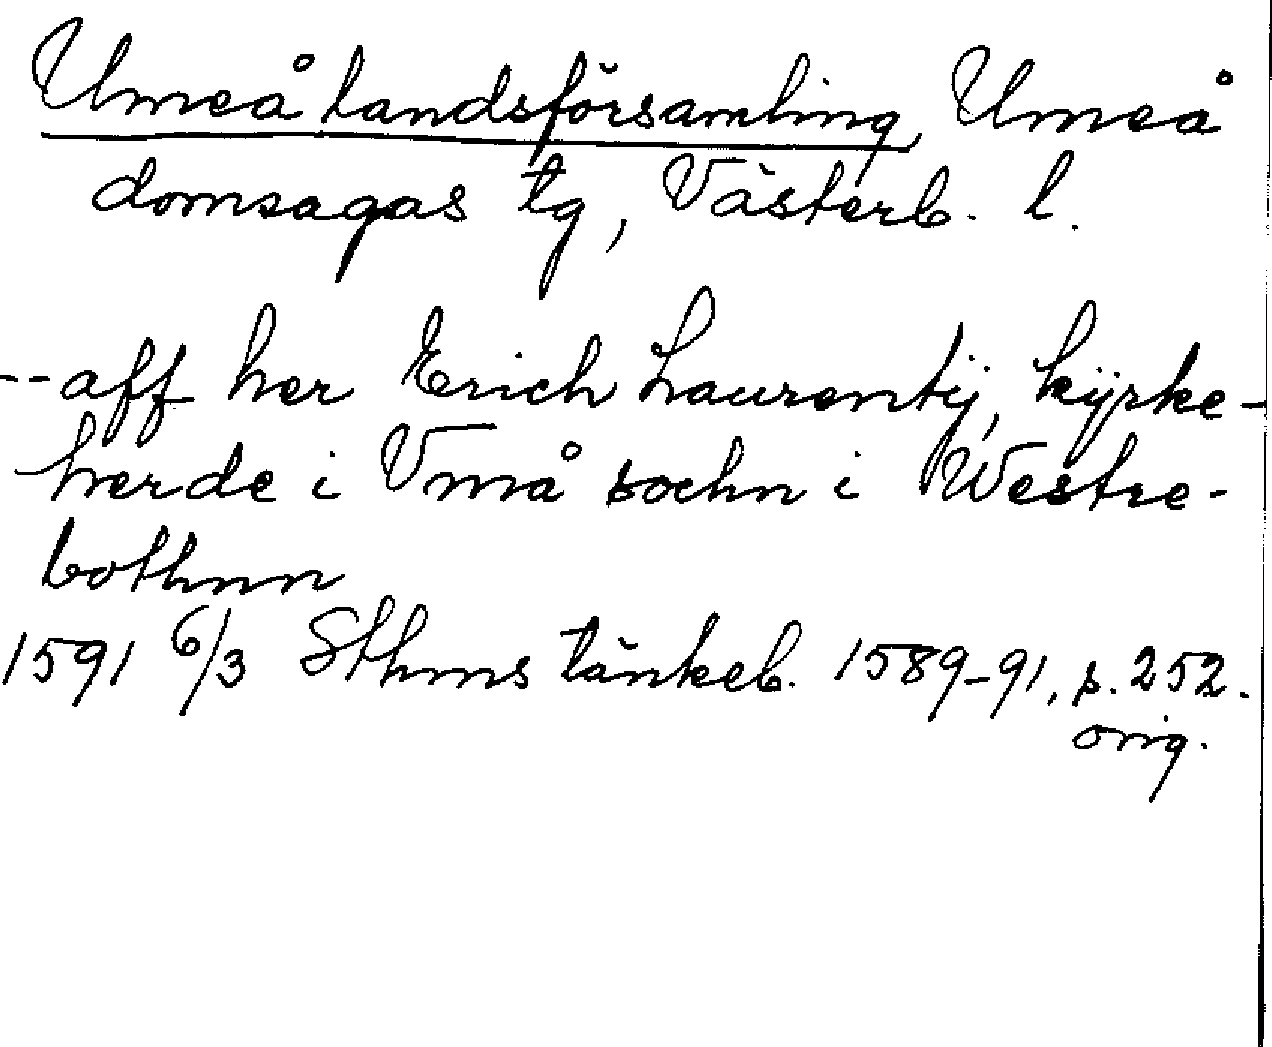 Umeå landsförsamling, Umeå
domsagas tg, Västerb. l.
--aff her Erich Laurentij, kÿrke-
herde i Vmå sochn i Westre-
bothnn
1591 6/3 Sthms tänkeb. 1589-91, s. 252.
orig.